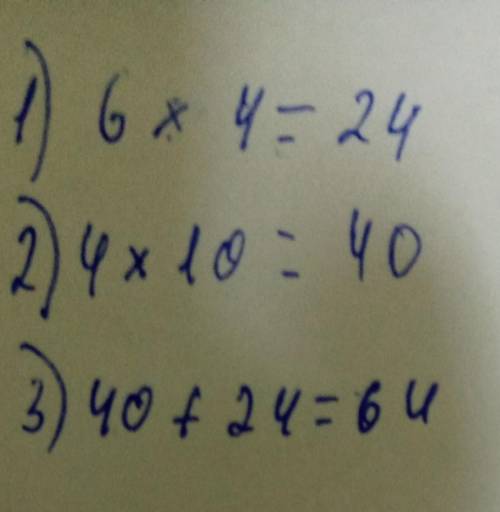 1) 6 × 4 = 24
2) 4 × 10 = 40
3) 40 + 24 = 64